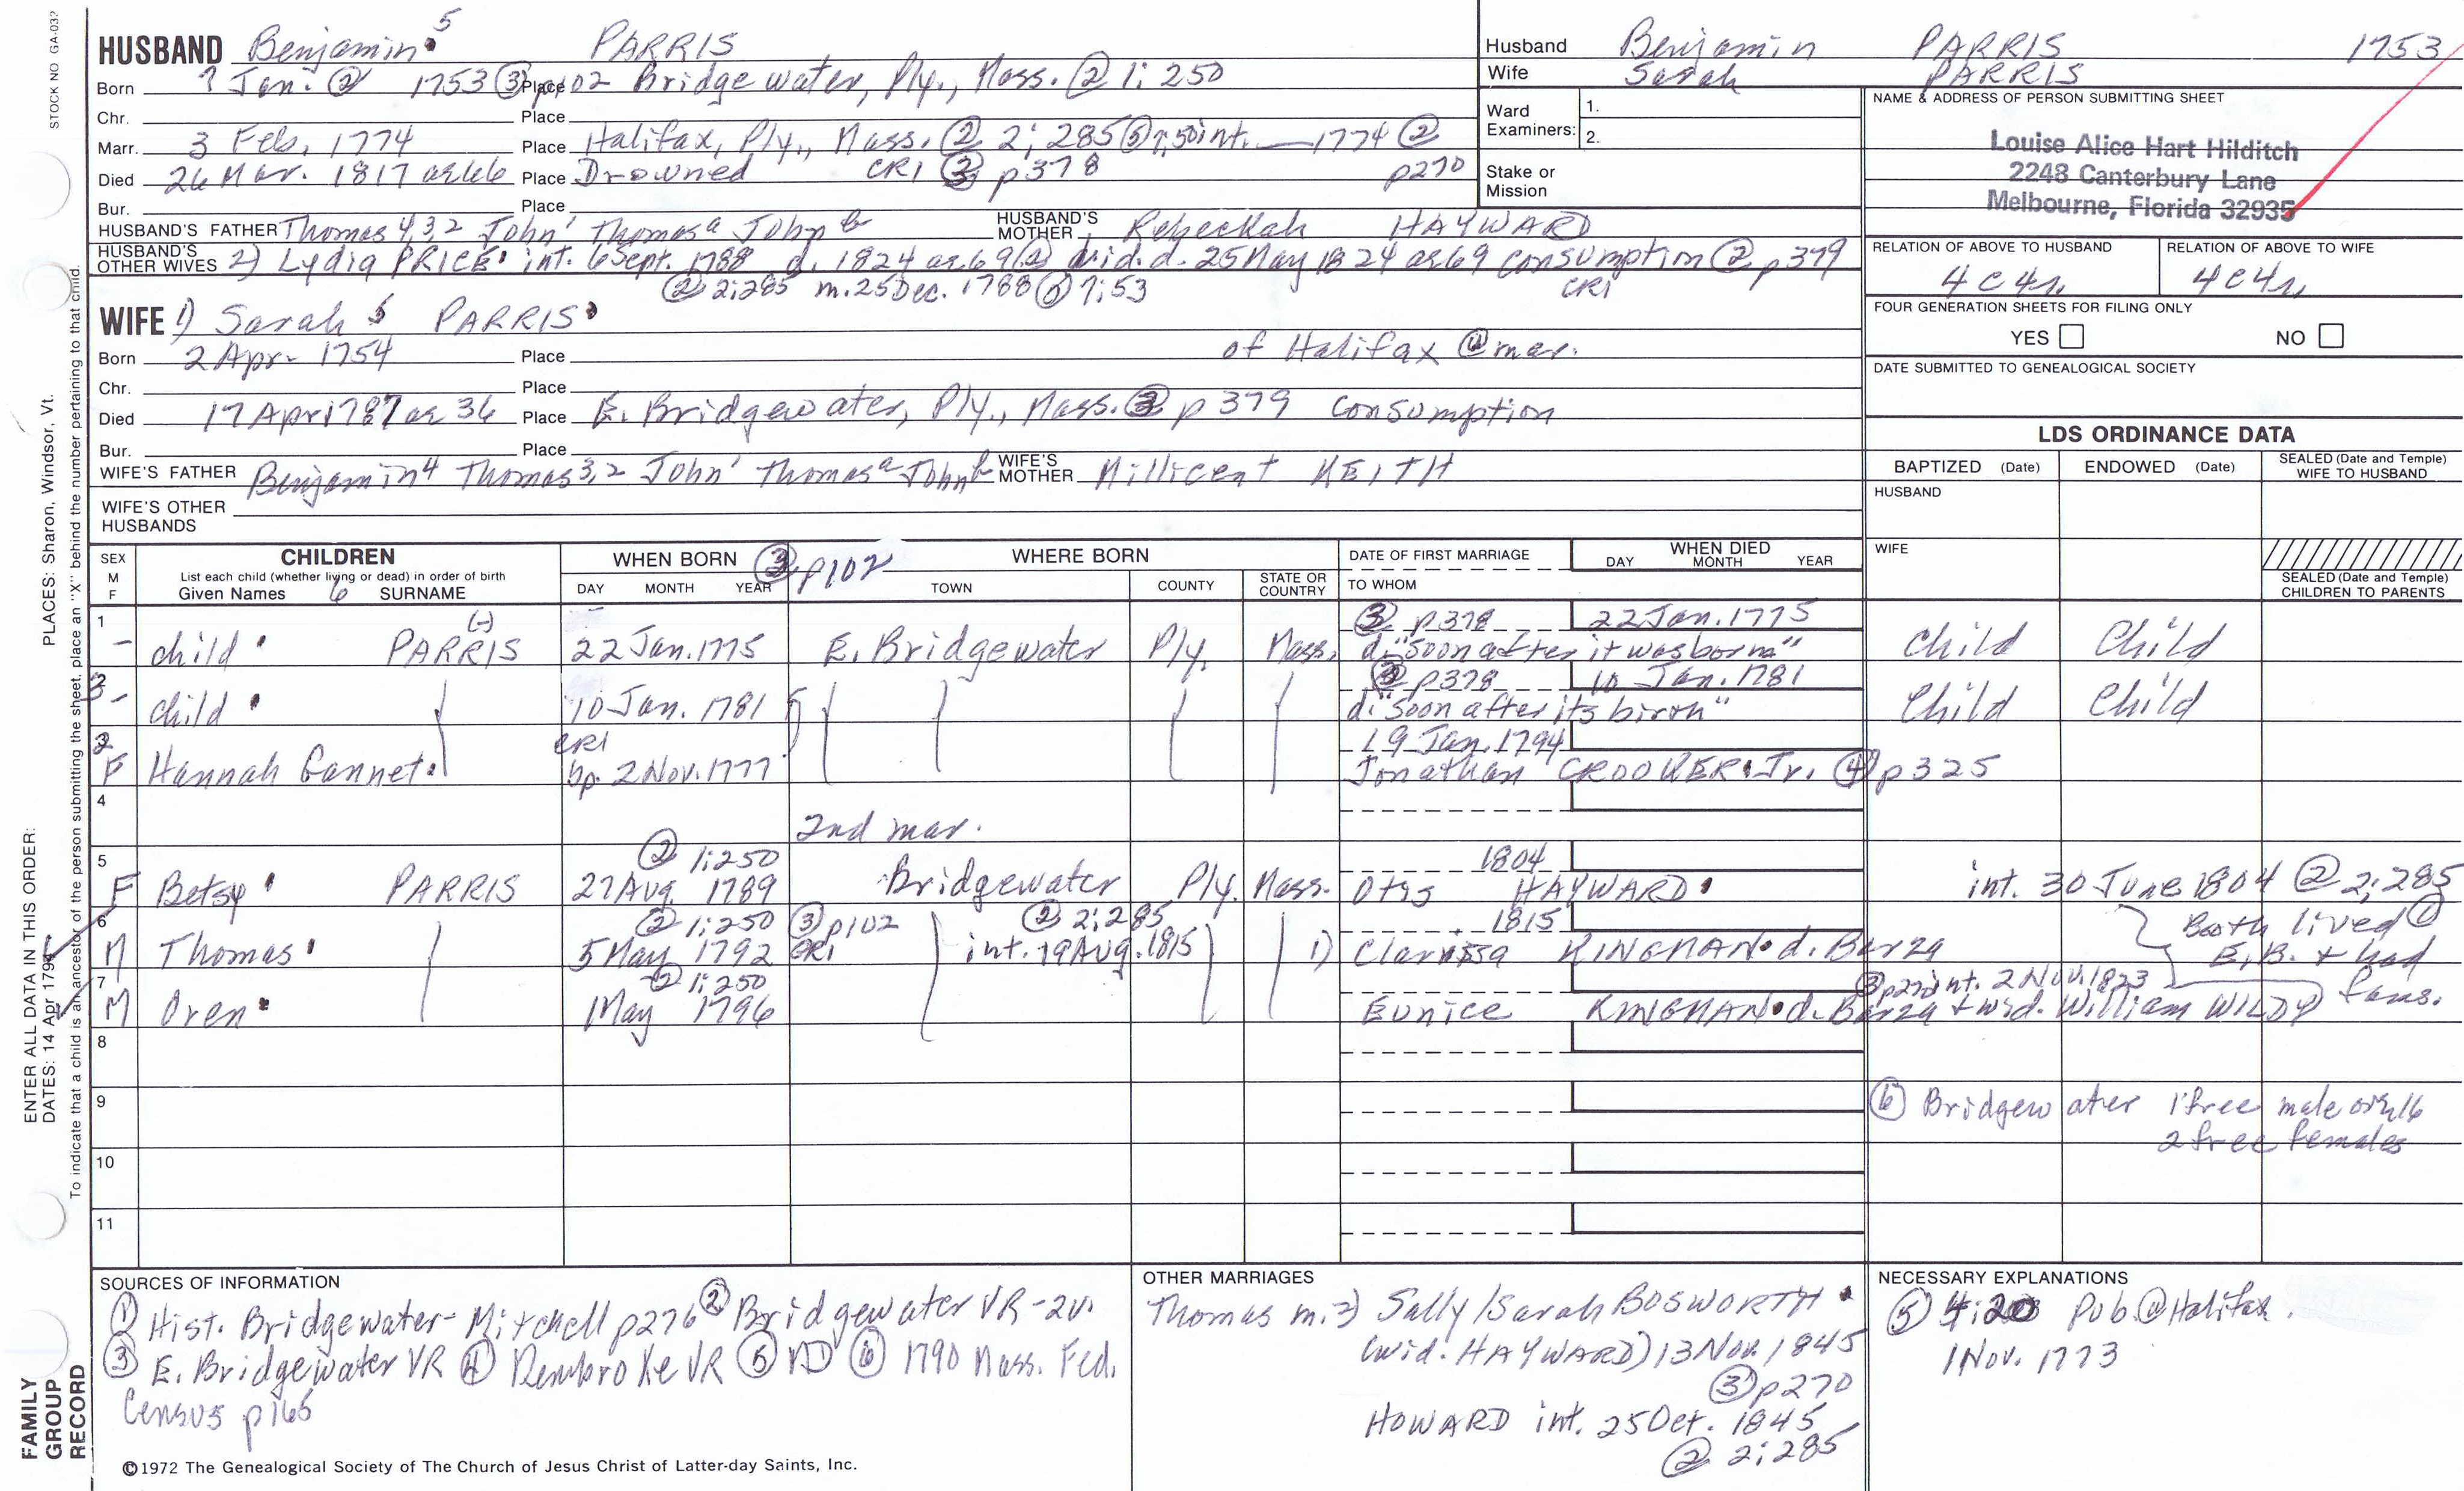 STOCK NO GA-032
HUSBAND Benjamin 5 PARRIS
Born 7 Jan. ② 1753 ③ p102 Place Bridgewater, Ply., Mass. ② 1:250
Chr. Place
Marr. 3 Feb. 1774 Place Halifax, Ply., Mass. ② 2:285 ⑤ int. 1774 ② p270
Died 26 Mar. 1817 ae 66 Place Drowned CR1 ③ p378
Bur. Place
HUSBAND'S FATHER Thomas 4,3,2 John 1 Thomas a John b HUSBAND'S MOTHER Rebeckah HAYWARD
HUSBAND'S OTHER WIVES 2) Lydia PRICE int. 6 Sept. 1788 d. 1824 ae 69 wid. d. 25 May 1824 ae 69 consumption ② p379
② 2:285 m. 25 Dec. 1788 7:53 CR1
WIFE 1) Sarah 5 PARRIS
Born 2 Apr. 1754 Place of Halifax @ mar.
Chr. Place
Died 17 Apr 1787 ae 36 Place E. Bridgewater, Ply., Mass. ③ p379 consumption
Bur. Place
WIFE'S FATHER Benjamin 4 Thomas 3,2 John 1 Thomas a John b WIFE'S MOTHER Millicent KEITH
WIFE'S OTHER HUSBANDS
Husband Benjamin PARRIS 1753
Wife Sarah PARRIS
Ward Examiners: 1.
2.
Stake or Mission
NAME & ADDRESS OF PERSON SUBMITTING SHEET
Louise Alice Hart Hilditch
2248 Canterbury Lane
Melbourne, Florida 32935
RELATION OF ABOVE TO HUSBAND RELATION OF ABOVE TO WIFE
4c4r 4c4r
FOUR GENERATION SHEETS FOR FILING ONLY
YES NO
DATE SUBMITTED TO GENEALOGICAL SOCIETY
LDS ORDINANCE DATA
BAPTIZED (Date) ENDOWED (Date) SEALED (Date and Temple) WIFE TO HUSBAND
HUSBAND
WIFE
SEALED (Date and Temple) CHILDREN TO PARENTS
SEX M F CHILDREN WHEN BORN ③ p102 WHERE BORN DATE OF FIRST MARRIAGE WHEN DIED
List each child (whether living or dead) in order of birth DAY MONTH YEAR
Given Names 6 SURNAME DAY MONTH YEAR TOWN COUNTY STATE OR COUNTRY TO WHOM
1 (-) ③ p378 22 Jan. 1775
- child PARRIS 22 Jan. 1775 E. Bridgewater Ply. Mass. d. "soon after it was born" Child Child
3 ③ p378 10 Jan. 1781
- child 10 Jan. 1781 d. "soon after its birth" Child Child
2 CR1 19 Jan. 1794
F Hannah Gannet bp. 2 Nov. 1777 Jonathan CROOKER Jr. ④ p325
4
2nd mar.
5 ② 1:250 1804
F Betsy PARRIS 27 Aug. 1789 Bridgewater Ply. Mass. Otis HAYWARD int. 30 June 1804 @ 2:285
6 ② 1:250 ③ p102 ② 2:285 1815 Both lived @
M Thomas 5 May 1792 CR1 int. 19 Aug. 1815 1) Clarissa KINGMAN d. Barza E.B. + had
7 ② 1:250 ③ p270 int. 2 Nov. 1823 fams.
M Oren May 1796 Eunice KINGMAN d. Barza + wid. William WILDY
8
9 ⑥ Bridgewater 1 free male over 16
2 free females
10
11
SOURCES OF INFORMATION
① Hist. Bridgewater - Mitchell p276 ② Bridgewater VR - 2v.
③ E. Bridgewater VR ④ Pembroke VR ⑤ MD ⑥ 1790 Mass. Fed.
Census p165
©1972 The Genealogical Society of The Church of Jesus Christ of Latter-day Saints, Inc.
OTHER MARRIAGES
Thomas m. 2) Sally/Sarah BOSWORTH
(wid. HAYWARD) 13 Nov. 1845
③ p270
HOWARD int. 25 Oct. 1845
② 2:285
NECESSARY EXPLANATIONS
⑤ Pub. @ Halifax.
1 Nov. 1773
PLACES: Sharon, Windsor, Vt.
ENTER ALL DATA IN THIS ORDER:
DATES: 14 Apr 1794
To indicate that a child is an ancestor of the person submitting the sheet, place an "X" behind the number pertaining to that child.
FAMILY GROUP RECORD